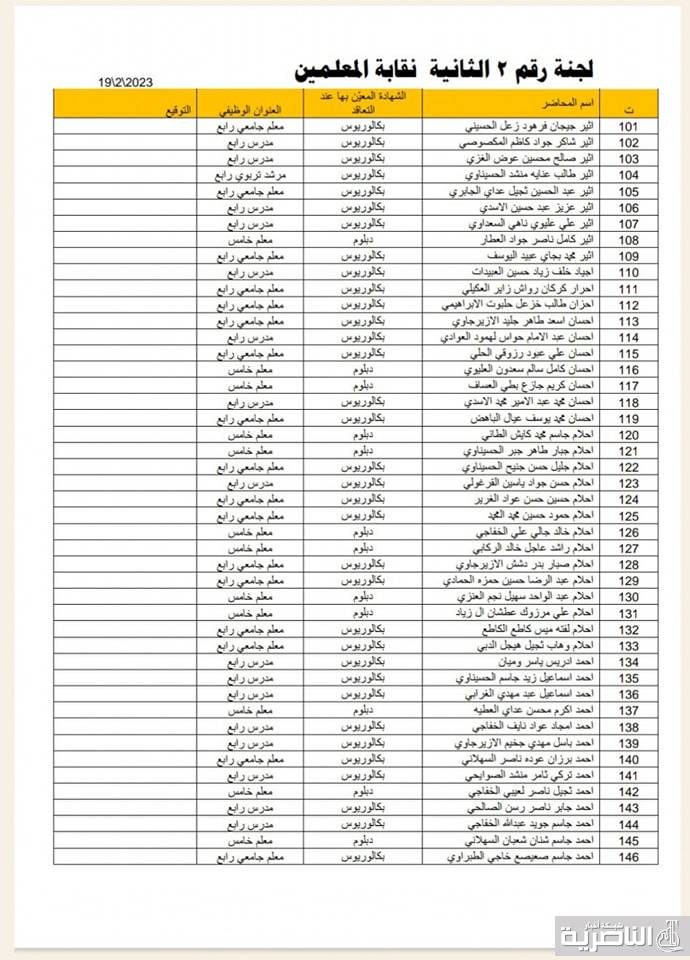 لجنة رقم ٢ الثانية نقابة المعلمين
19\2\2023
ت اسم المحاضر الشهادة المعيّن بها عند التعاقد العنوان الوظيفي التوقيع
101 اثير جيجان فرهود زعل الحسيني بكالوريوس معلم جامعي رابع
102 اثير شاكر جواد كاظم المكصوصي بكالوريوس مدرس رابع
103 اثير صالح محسين عوض الغزي بكالوريوس مدرس رابع
104 اثير طالب عنايه منشد الحسيناوي بكالوريوس مرشد تربوي رابع
105 اثير عبد الحسين ثجيل عداي الجابري بكالوريوس معلم جامعي رابع
106 اثير عزيز عبد حسين الاسدي بكالوريوس مدرس رابع
107 اثير علي عليوي ناهي السعداوي بكالوريوس مدرس رابع
108 اثير كامل ناصر جواد العطار دبلوم معلم خامس
109 اثير محمد بجاي عبيد اليوسف بكالوريوس معلم جامعي رابع
110 اجياد خلف زياد حسين العبيدات بكالوريوس مدرس رابع
111 احرار كركان رواش زاير العكيلي بكالوريوس معلم جامعي رابع
112 احزان طالب خزعل حلبوت الابراهيمي بكالوريوس معلم جامعي رابع
113 احسان اسعد طاهر جليد الازيرجاوي بكالوريوس معلم جامعي رابع
114 احسان عبد الامام حواس لهمود العوادي بكالوريوس مدرس رابع
115 احسان علي عبود رزوقي الحلي بكالوريوس معلم جامعي رابع
116 احسان كامل سالم سعدون العليوي دبلوم معلم خامس
117 احسان كريم جازع بطي العساف دبلوم معلم خامس
118 احسان محمد عبد الامير محمد الاسدي بكالوريوس مدرس رابع
119 احسان محمد يوسف عيال الباهض بكالوريوس معلم جامعي رابع
120 احلام جاسم محمد كايش الطائي دبلوم معلم خامس
121 احلام جبار طاهر جبر الحسيناوي دبلوم معلم خامس
122 احلام جليل حسن جنيح الحسيناوي بكالوريوس معلم جامعي رابع
123 احلام حسن جواد ياسين القرغولي بكالوريوس مدرس رابع
124 احلام حسين حسن عواد الغرير بكالوريوس معلم جامعي رابع
125 احلام حمود حسين محمد المحمد بكالوريوس معلم جامعي رابع
126 احلام خالد جالي علي الخفاجي دبلوم معلم خامس
127 احلام راشد عاجل خالد الركابي دبلوم معلم خامس
128 احلام صبار بدر دشش الازيرجاوي بكالوريوس معلم جامعي رابع
129 احلام عبد الرضا حسين حمزه الحمادي بكالوريوس معلم جامعي رابع
130 احلام عبد الواحد سهيل نجم العنزي دبلوم معلم خامس
131 احلام علي مرزوك عطشان ال زياد دبلوم معلم خامس
132 احلام لفته ميس كاطع الكاطع بكالوريوس معلم جامعي رابع
133 احلام وهاب ثجيل هيجل الدبي بكالوريوس معلم جامعي رابع
134 احمد ادريس ياسر وميان بكالوريوس مدرس رابع
135 احمد اسماعيل زيد جاسم الحسيناوي بكالوريوس مدرس رابع
136 احمد اسماعيل عبد مهدي الغرابي بكالوريوس مدرس رابع
137 احمد اكرم محسن عداي العطيه دبلوم معلم خامس
138 احمد امجاد عواد نايف الخفاجي بكالوريوس مدرس رابع
139 احمد باسل مهدي جخيم الازيرجاوي بكالوريوس مدرس رابع
140 احمد برزان عوده ناصر السهلاني بكالوريوس معلم جامعي رابع
141 احمد تركي ثامر منشد الصوايحي بكالوريوس مدرس رابع
142 احمد ثجيل ناصر لعيبي الخفاجي دبلوم معلم خامس
143 احمد جابر ناصر رسن الصالحي بكالوريوس مدرس رابع
144 احمد جاسم جويد عبدالله الخفاجي بكالوريوس مدرس رابع
145 احمد جاسم شنان شعبان السهلاني دبلوم معلم خامس
146 احمد جاسم صعيصع خاجي الطبراوي بكالوريوس معلم جامعي رابع
شبكة اخبار
الناصرية